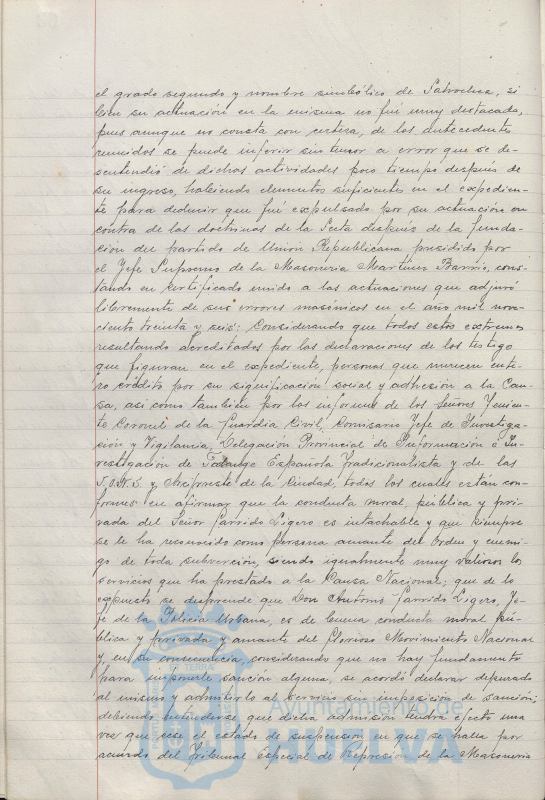 el grado segundo y nombre simbólico de Patroclus, si
bien su actuación en la misma no fué muy destacada,
pues aunque no consta con certeza, de los antecedentes
reunidos se puede inferir sin temor a error que se de-
sentendió de dichas actividades poco tiempo después de
su ingreso, habiendo elementos suficiente en el expedien-
te para deducir que fué expulsado por su actuación en
contra de las doctrinas de la Secta después de la funda-
ción del partido de Unión Republicana presidido por
el Jefe Supremo de la Masonería Martínez Barrio, cons-
tando en certificado unido a las actuaciones que adjuró
libremente de sus errores masónicos en el año mil nove-
ciento treinta y seis: Considerando que todos estos extremos
resultando acreditados por las declaraciones de los testigo
que figuran en el expediente, personas que merecen ente-
ro crédito por su significación social y adhesión a la Cau-
sa, así como también por los informes de los Señores Tenien-
te Coronel de la Guardia Civil, Comisario Jefe de Investiga-
ción y Vigilancia, Delegación Provincial de Información e In-
vestigación de Falange Española Tradicionalista y de las
J.O.N.S. y Arcipreste de la Ciudad, todos los cuales están con-
formes en afirmar que la conducta moral, pública y pri-
vada del Señor Garrido Ligero es intachable y que siempre
se le ha reconocido como persona amante del orden y enemi-
go de toda subversión, siendo igualmente muy valiosos los
servicios que ha prestado a la Causa Nacional; que de lo
expuesto se desprende que Don Antonio Garrido Ligero, Je-
fe de la Policía Urbana, es de buena conducta moral pú-
blica y privada y amante del Glorioso Movimiento Nacional
y en su consecuencia, considerando que no hay fundamento
para imponerle sanción alguna, se acordó declarar depurado
al mismo y admitirlo al servicio sin imposición de sanción;
debiendo entenderse que dicha admisión tendrá efecto una
vez que cese el estado de suspensión en que se halla por
acuerdo del Tribunal Especial de Represión de la Masonería
Ayuntamiento de
HUELVA